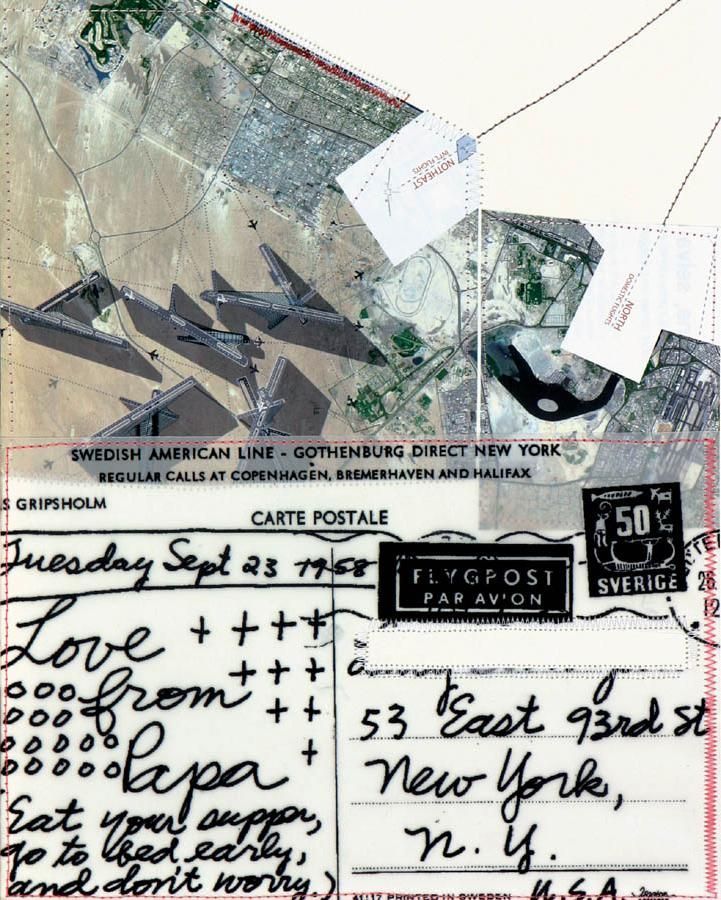 NOTHEAST
INT'L FLIGHTS
NORTH
DOMESTIC FLIGHTS
SWEDISH AMERICAN LINE - GOTHENBURG DIRECT NEW YORK
REGULAR CALLS AT COPENHAGEN, BREMERHAVEN AND HALIFAX
S GRIPSHOLM
CARTE POSTALE
50
SVERIGE
Tuesday Sept 23 1958
FLYGPOST
PAR AVION
26
12
Love
from
Papa
Eat your supper,
go to bed early,
and don't worry.)
53 East 93rd St
New York,
N.Y.
U.S.A.
41117 PRINTED IN SWEDEN